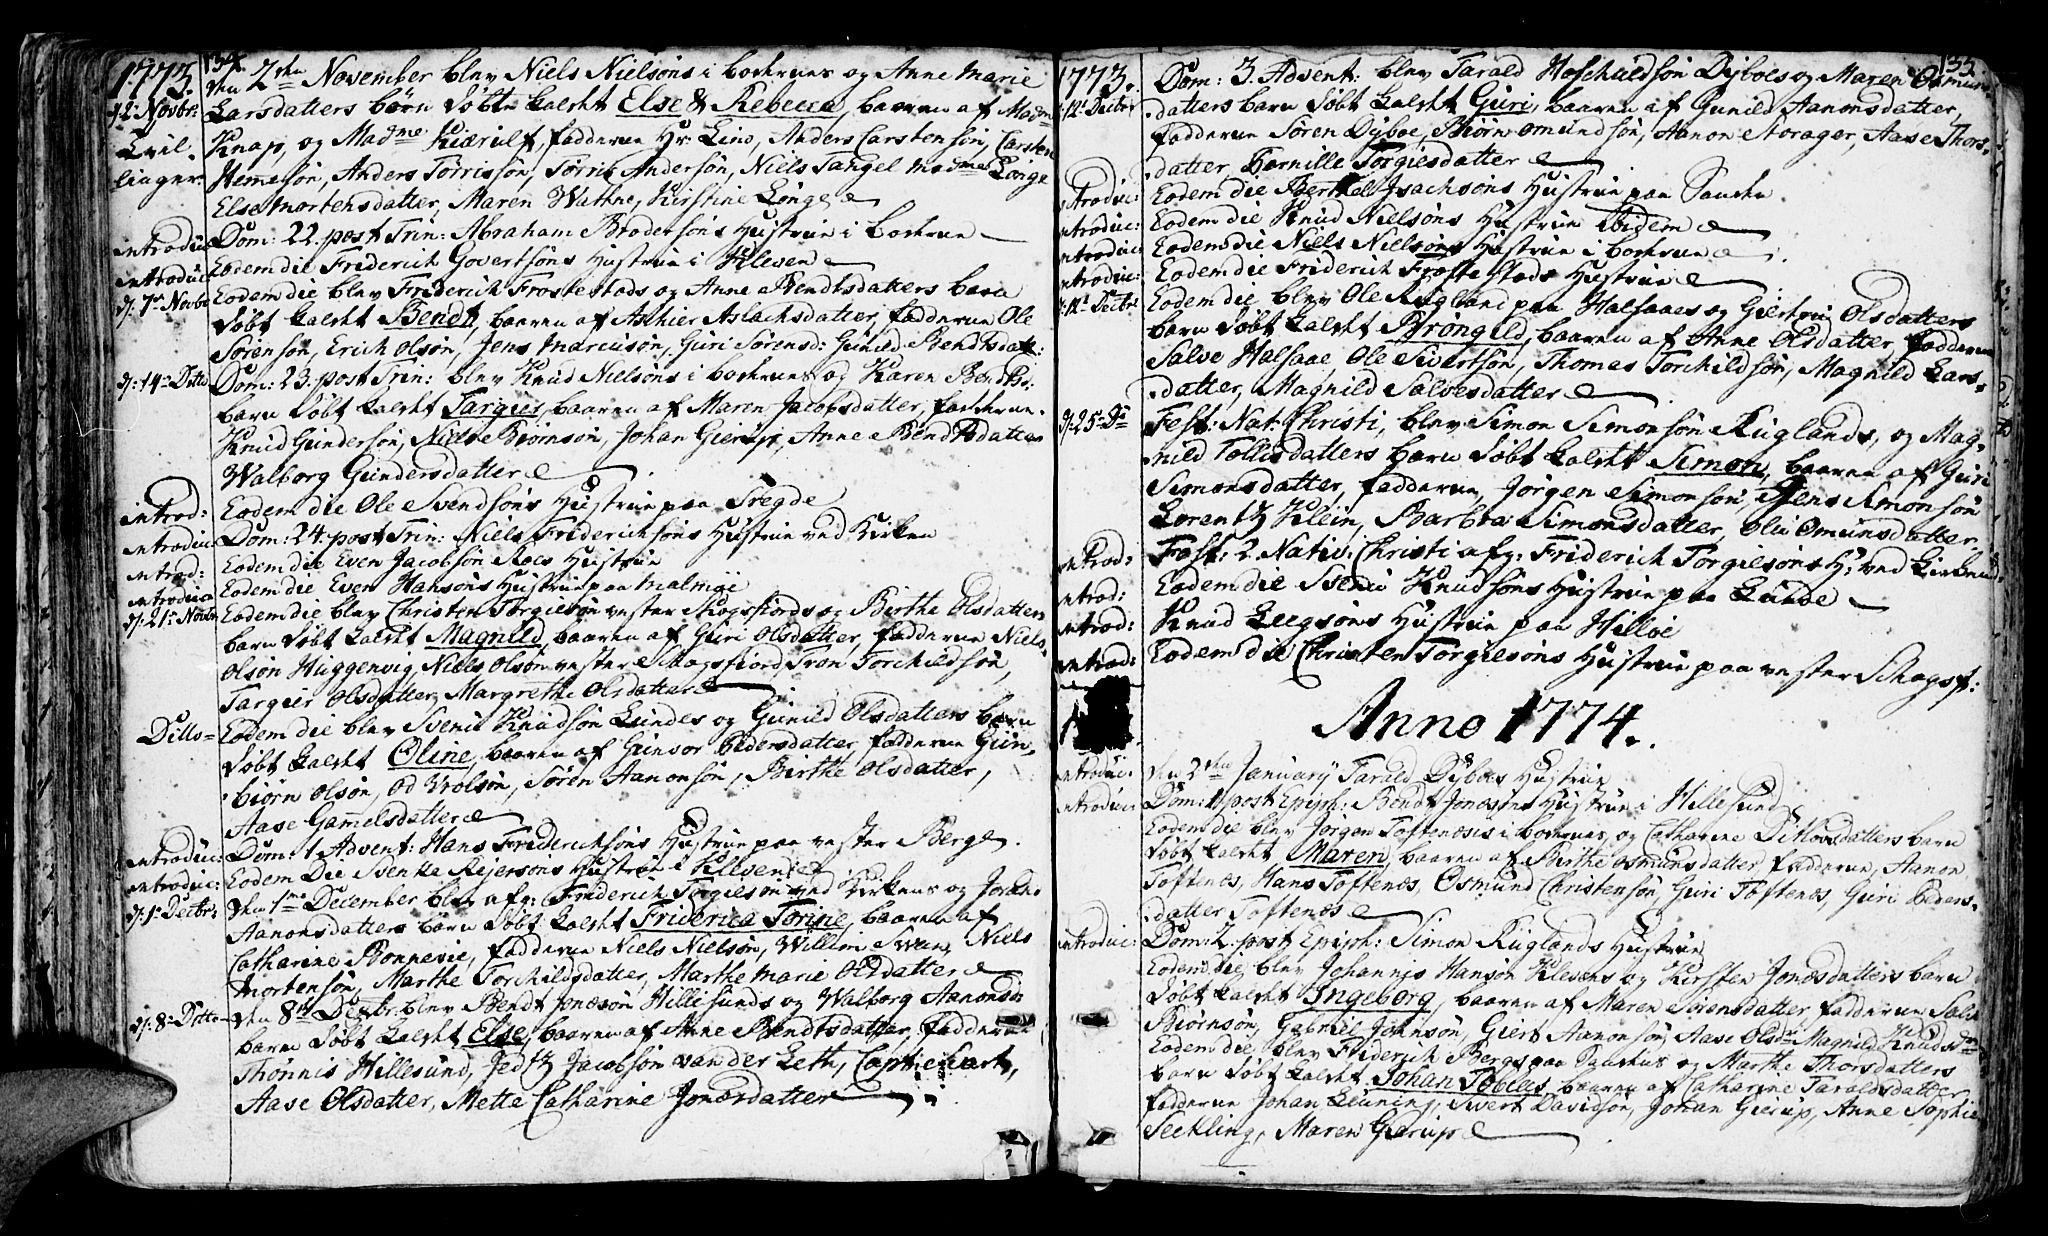 1773. 134.
den 2den November blev Niels Nielsöns i borhrunes og Anne Marie
d: 2 Novbr: Larsdatters börn döbte kaldet Else & Rebecca, baaren af Madme
Tvil- Knap, og Madme Kierulf, fadderne Hr. Lind, Anders Carstensön, Carsten
linger: Hemesön, Anders Törrissön, Törris Andersön, Niels Tangel Madme Lönge
Else Mortensdatter, Maren Wathne, Kirstine Lönge
introduc: Dom: 22. post Trin: Abraham Brodersöns Hustrue i
introduc: Eodem die Friderich Govertsöns Hustrue i Kleven
d: 7de Novbr Eodem die blev Friderich Frostestads og Anne Bendtsdatters barn
döbt kaldet Bendt, baaren af Aslachsdatter, fadderne Ole
Sörensön, Erich Olsön, Jens Indreusön, Guri Sörensd: Gunild Bendtsdat:
d: 14de Ditto Dom: 23. post Trin: blev Knud Nielsöns i og Karen Bendtsd:
barn döbt kaldet Targier, baaren af Maren Jacobsdatter, fadderne
Knud Gundersön, Niels Biörnsön, Johan Gierup, Anne Bendtsdatter
Walborg Gundersdatter
introd: Eodem die Ole Svendsöns Hustrue paa Tregde
introduc: Dom: 24. post Trin: Niels Fridericksöns Hustrue ved Kirken
introd: Eodem die Even Jacobsön Roes Hustrue
introduc: Eodem die Even Hansöns Hustrue paa Malmöe
d: 21de Novbr Eodem die blev Christen Torgielsön vester Skogsfiords og Birthe Olsdatters
barn döbt kaldet Magnild, baaren af Guri Olsdatter, fadderne Niels
Olsön Huggenvig, Niels Olsön vester Skogsfiord, Tron Torchildsön,
Targier Olsdatter, Margrethe Olsdatter
Ditto Eodem die blev Svend Knudsön Lundes og Gunild Olsdatters barn
döbt kaldet Oline, baaren af Gunvor Pedersdatter, fadderne Gun-
biörn Olsön, Od Wrolsön, Sören Aanonsön, Birthe Olsdatter,
Aase Gamelsdatter
introduc: Dom: 1 Advent: Hans Fridericksöns Hustrue paa vester Berge.
introduc: Eodem Die Svenke Reiersöns Hustrue i Kleven
d: 1de Decbr: den 1me December blev afg: Friderich Torgielsön ved Kirkens og
Aanonsdatters barn döbt kaldet Friderica Torine, baaren af
Catharine Bonnevie, fadderne Niels Nielsön, Willum Swan, Niels
Mortensön, Marthe Torchildsdatter, Marthe Marie Olsdatter
d: 8de Ditto den 8de Decbr. blev Bendt Jonæsön Hillesunds og Walborg Aanonsd:
barn döbt kaldet Else, baaren af Anne Bendtsdatter, fadderne
Thönnis Hillesund, Jacobsön van der Leth, Capt: Chart,
Aase Olsdatter, Mette Catharine Jonæsdatter
1773. 135.
d: 12de Decbr Dom: 3. Advent: blev Tarald Hoschuldsön Dyboes og Maren Osmun-
datters barn döbt kaldet Guri, baaren af Gunild Aanonsdatter,
fadderne Sören Dyboe, Biörn Omundsön, Aanon Storager, Aase Thors-
datter, Pernille Torgiesdatter
introduc: Eodem die Berthel Isachsöns Hustrue paa Sanden
introduc: Eodem die Knud Nielsöns Hustrue Ibidem
introduc: Eodem die Niels Nielsöns Hustrue i
introduc: Eodem die Friderich Frostestads Hustrue
d: 12de Decbr Eodem die blev Ole Rugland paa Halsaaes og Giertrue Olsdatters
barn döbt kaldet Bröngild, baaren af Anne Olsdatter, fadderne
Salve Halsaae, Ole Sivertsön, Thomas Torchildsön, Magnild Lars-
datter, Magnild Salvesdatter
d: 25de Do Fest: Nat: Christi, blev Simon Simonsön Ruglands, og Mag-
nild Tollisdatters barn döbt kaldet Simon, baaren af Guri
Simonsdatter, fadderne, Jörgen Simonsön, Jens Simonsön
Lorentz Klein, Barbra Simonsdatter, Olu Omunsdatter
introd: Fest: 2. Nativ: Christi afg: Friderich Torgielsöns H: ved Kirken
introd: Eodem die Svend Knudsöns Hustrue paa Lunde
introd: Knud Leegsöns Hustrue paa Hilløe
introd: Eodem die Christen Torgielsöns Hustrue paa vester Skogsf:
Anno 1774.
introduc: den 2den January Tarald Dyboes Hustrue
introduc: Dom: 1 post Epiph: Bendt Jonæsens Hustrue i Hillesund
Eodem die blev Jörgen Toftenæs i og Catharine Ditlovsdatters barn
döbt kaldet Maren, baaren af Birthe Osmunsdatter, fadderne, Aanon
Toftenæs, Hans Toftenæs, Osmund Christensön, Guri Toftenæs, Guri Peders-
datter Toftenæs
introduc: Dom: 2. post Epiph: Simon Ruglands Hustrue
Eodem die blev Johannis Hansön Klevens og Kirsten Jonæsdatters barn
döbt kaldet Ingeborg, baaren af Maren Sörensdatter, fadderne Salve
Biörnsön, Gabriel Johnsön, Giert Aanonsön, Aase Olsdr Magnild Knudsdr
Eodem die blev Friderich Bergs paa Sandens og Marthe Thorsdatters
barn döbt kaldet Johan Tobias, baaren af Catharine Taraldsdatter
fadderne Johan Leuning, Sivert Davidsön, Johan Gierup, Anne Sophie
Seckling, Maren Gierup